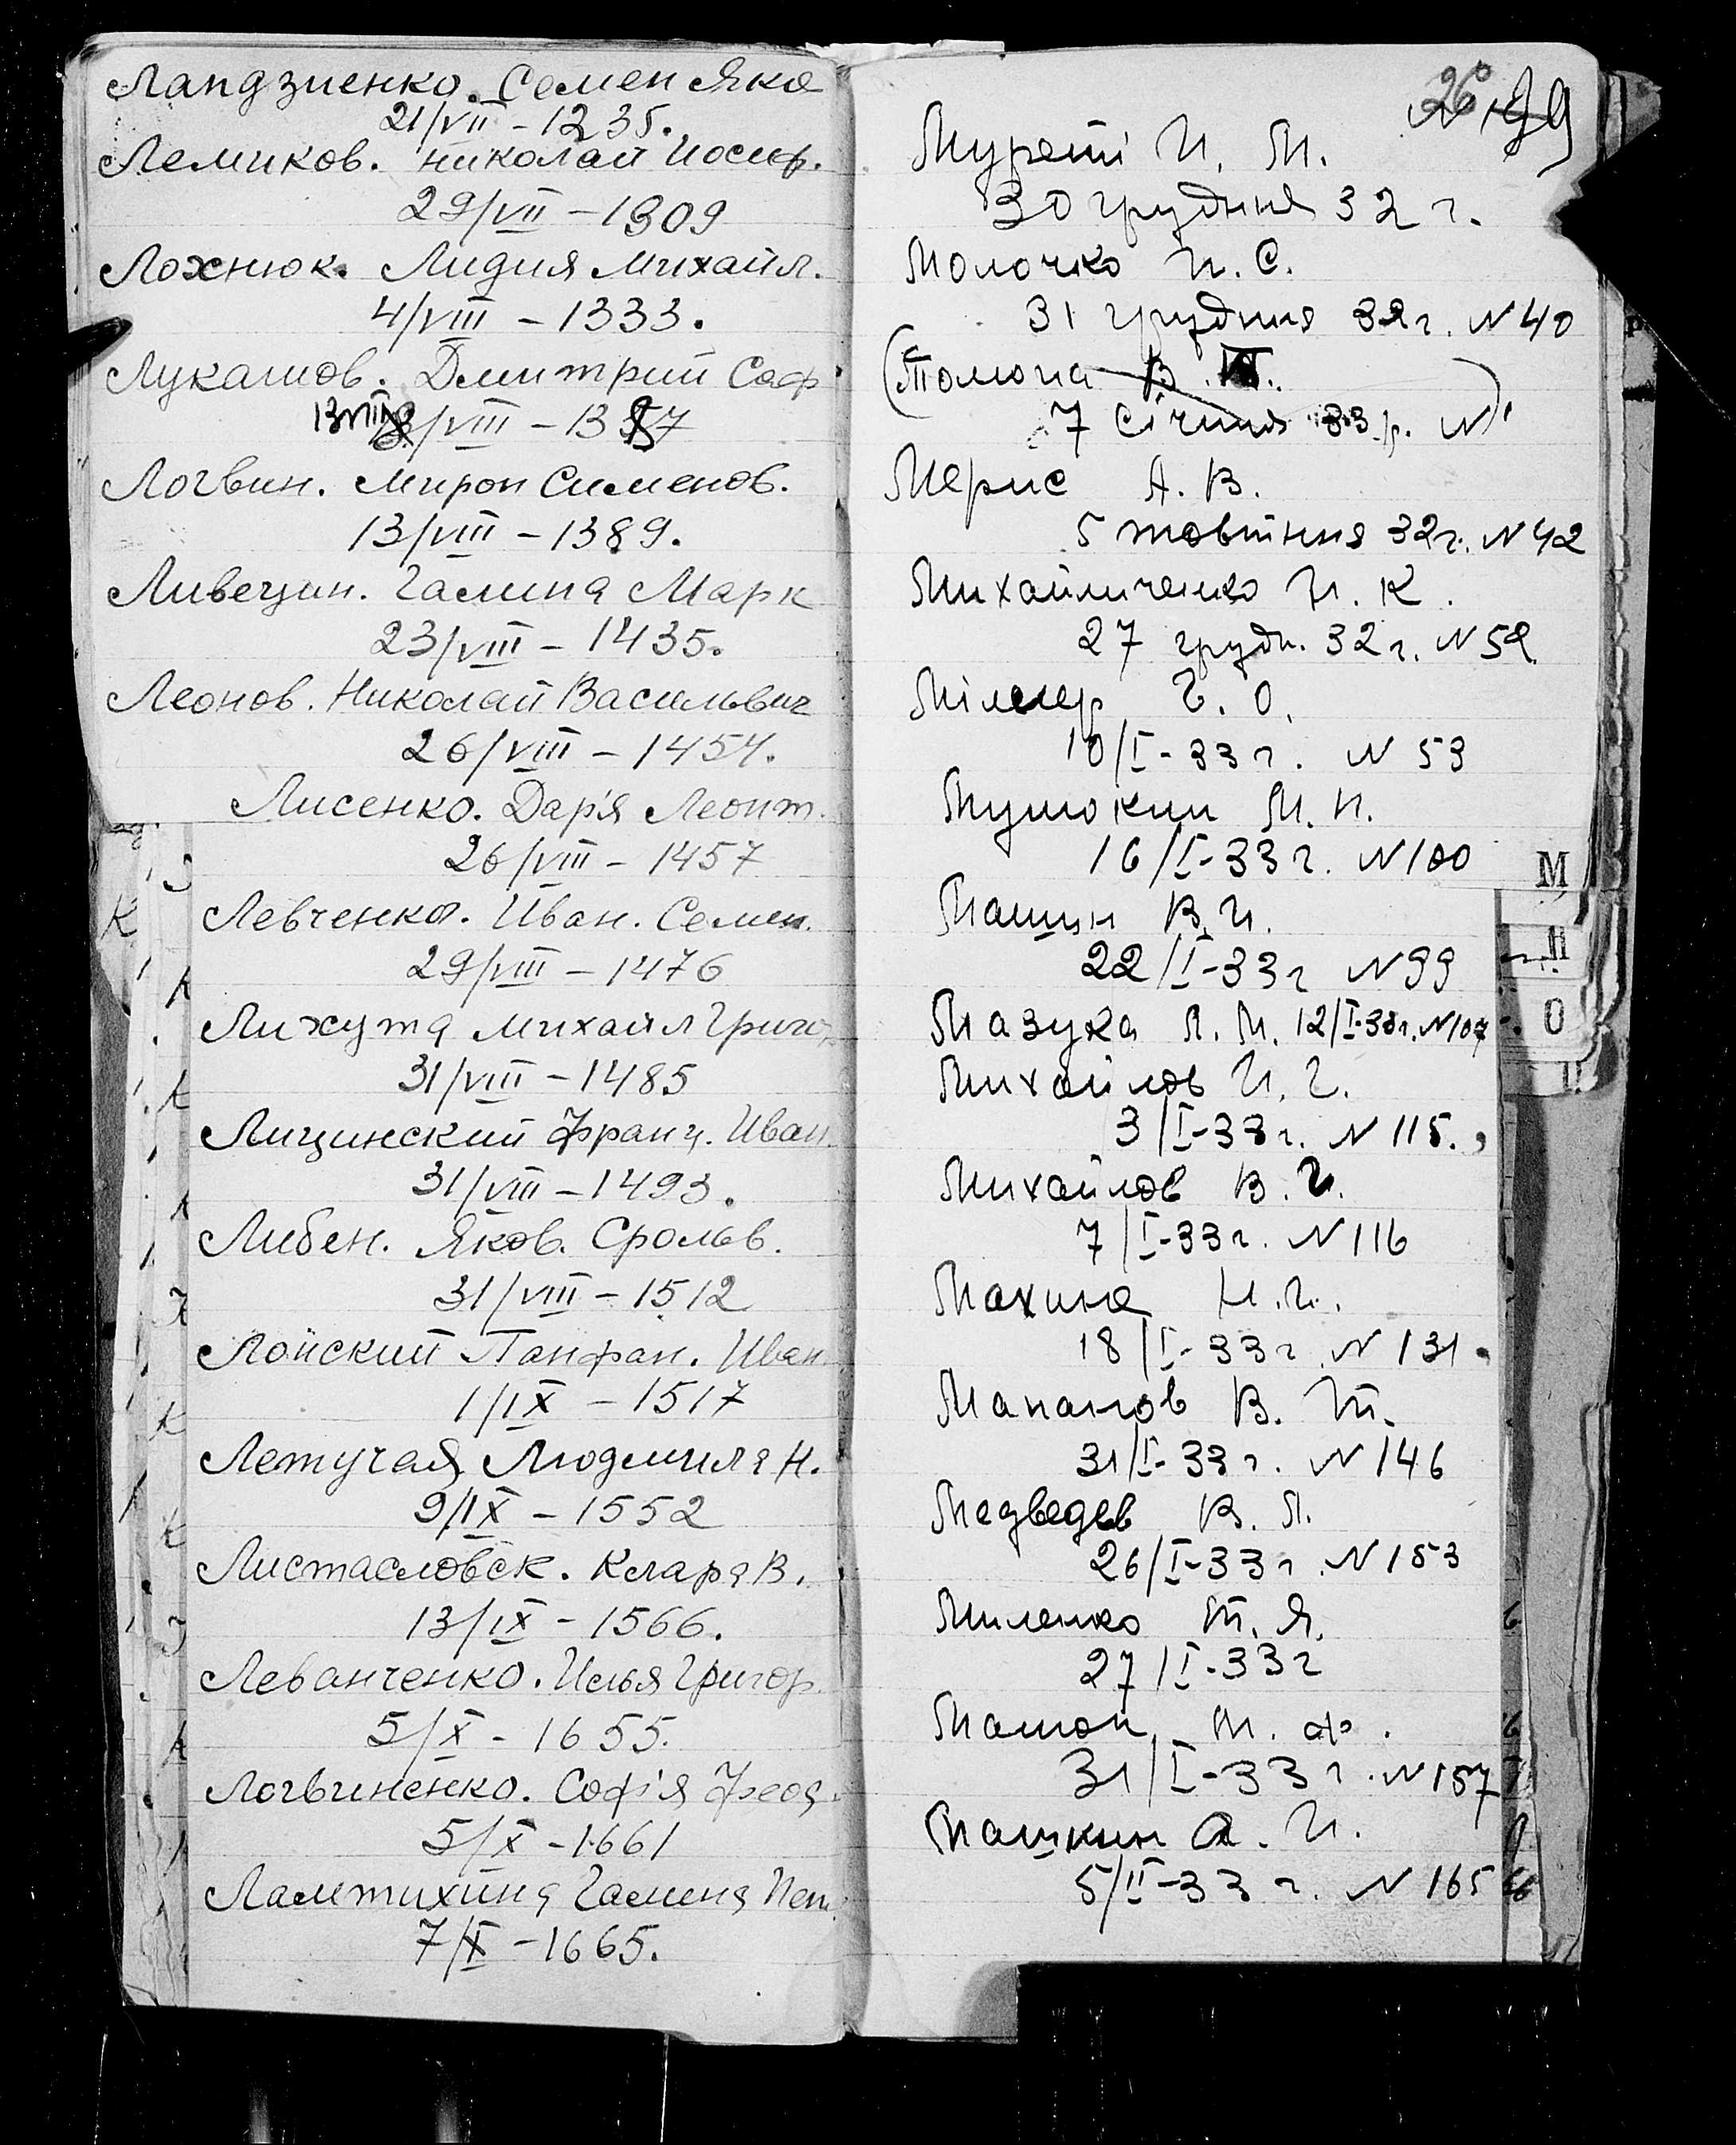 Лапдзиенко. Семен Яко
21/VII - 1235.
Лемиков. Николай Иосиф.
29/VII - 1309
Лохнюк. Лидия Михайл.
4/VIII - 1333.
Лукашов. Дмитрий Саф
13/VIII - 1387
Логвин. Мирон Сименов.
13/VIII - 1389.
Ливецин. Галина Марк
23/VIII - 1435.
Леонов. Николай Васильвич
26/VIII - 1454.
Лисенко. Дар'я Леонт.
26/VIII - 1457
Левченко. Иван. Семен.
29/VIII - 1476
Лихута Михаил Григо
31/VIII - 1485
Лицинский Франц. Иван
31/VIII - 1493.
Либен. Яков. Срольв.
31/VIII - 1512
Лойский Панфан. Иван
1/IX - 1517
Летучая Людмила Н.
9/IX - 1552
Листасловск. Клара В.
13/IX - 1566.
Леванченко. Илья Григор
5/X - 1655.
Логвиненко. Софiя Феод.
5/X - 1661
Ламтихина Галина Пет.
7/X - 1665.
26
И. М.
30 грудня 32 г.
Молочко И. С.
31 грудня 32 г. N 40
В.
7 Січня 33 р. N
Мерис А. В.
5 жовтня 32 г. N 42
Михайличенко И. К.
27 грудн. 32 г. N 52
Мiллер Г. О.
10/I-33 г. N 53
Мушокин М. И.
16/I-33 г. N 100
Машин В. И.
22/I-33 г N 99
Мазуха Л. М. 12/I-33 г. N 107
Михайлов И. Г.
3/I-33 г. N 115.
Михайлов В. И.
7/I-33 г. N 116
Махина Н. И.
18/I-33 г. N 131
Маканов В. Т.
31/I-33 г. N 146
Медведев В. Л.
26/I-33 г. N 153
Миленко Т. Я.
27/I-33 г
Мамон М. Ф.
31/I-33 г. N 157
Машкин А. И.
5/II-33 г. N 165
М
О